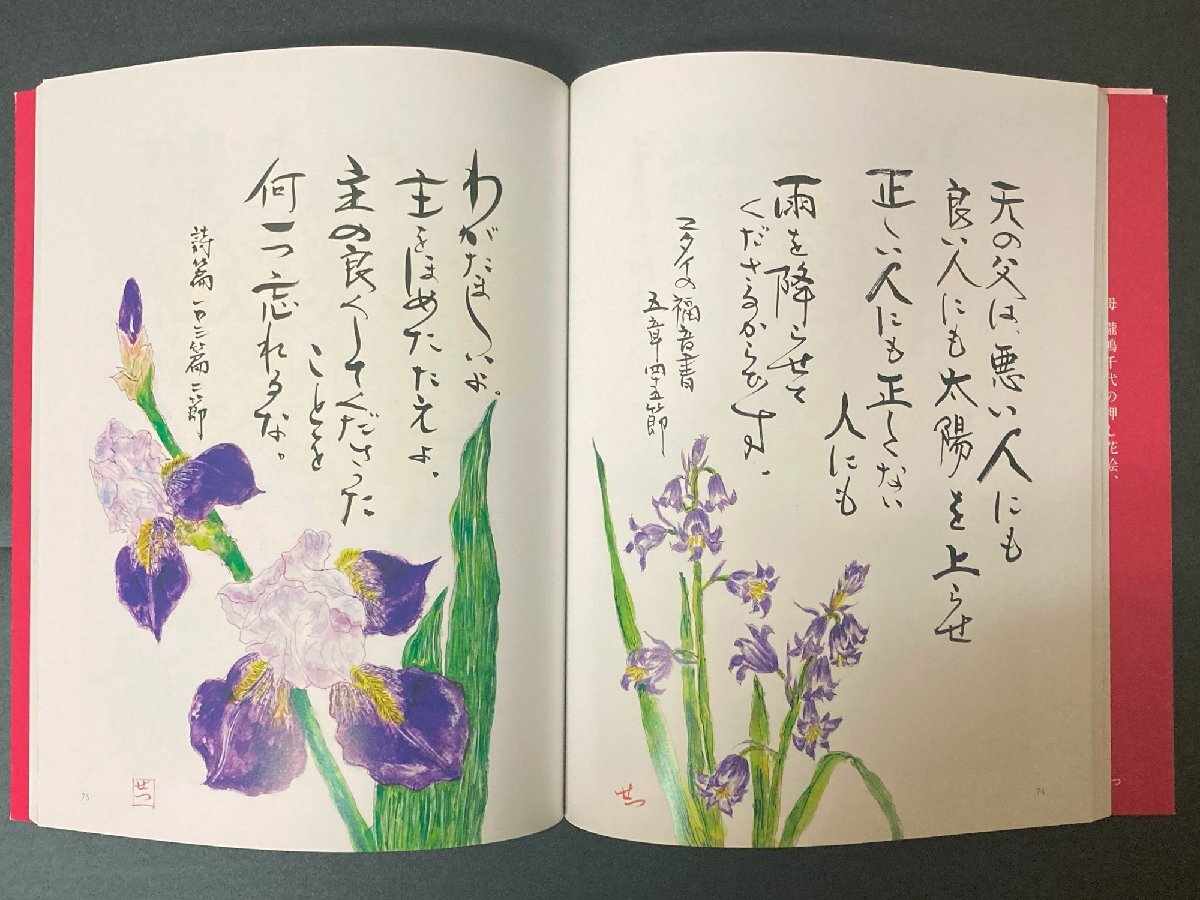 千代の押し花絵、
天の父は、悪い人にも
良い人にも太陽を上らせ
正しい人にも正しくない
人にも
雨を降らせて
くださるからです。
マタイの福音書
五章四十五節
せつ
74
わがたましいよ。
主をほめたたえよ。
主の良くしてくださった
ことを
何一つ忘れるな。
詩篇 一〇三篇二節
せつ
75